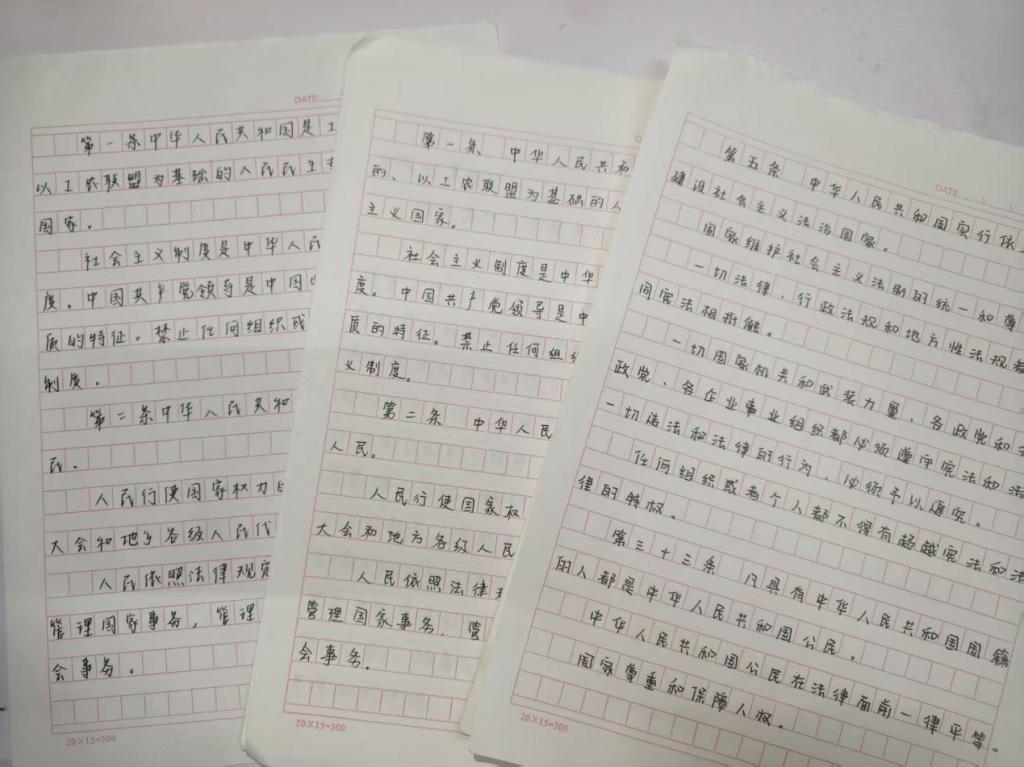 DATE
第一条中华人民共和国是工
以工农联盟为基础的人民民主专
国家。
社会主义制度是中华人民
度。中国共产党领导是中国
质的特征。禁止任何组织或
制度。
第二条中华人民共和
民。
人民行使国家权力
大会和地方各级人民代
人民依照法律规定
管理国家事务,管理
会事务。
20×15=300
第一条 中华人民共和
的、以工农联盟为基础的人
主义国家。
社会主义制度是中华
度。中国共产党领导是中
质的特征。禁止任何组织
义制度。
第二条 中华人民
人民。
人民行使国家权
大会和地方各级人民
人民依照法律
管理国家事务,管
会事务。
20×15=300
DATE
第五条 中华人民共和国实行依
建设社会主义法治国家。
国家维护社会主义法制的统一和尊
一切法律、行政法规和地方性法规
同宪法相抵触。
一切国家机关和武装力量、各政党和
政党、各企业事业组织都必须遵守宪法和法
一切违法和法律的行为,必须予以追究。
任何组织或者个人都不得有超越宪法和法
律的特权。
第三十三条 凡具有中华人民共和国国籍
的人都是中华人民共和国公民。
中华人民共和国公民在法律面前一律平等。
国家尊重和保障人权。
20×15=300